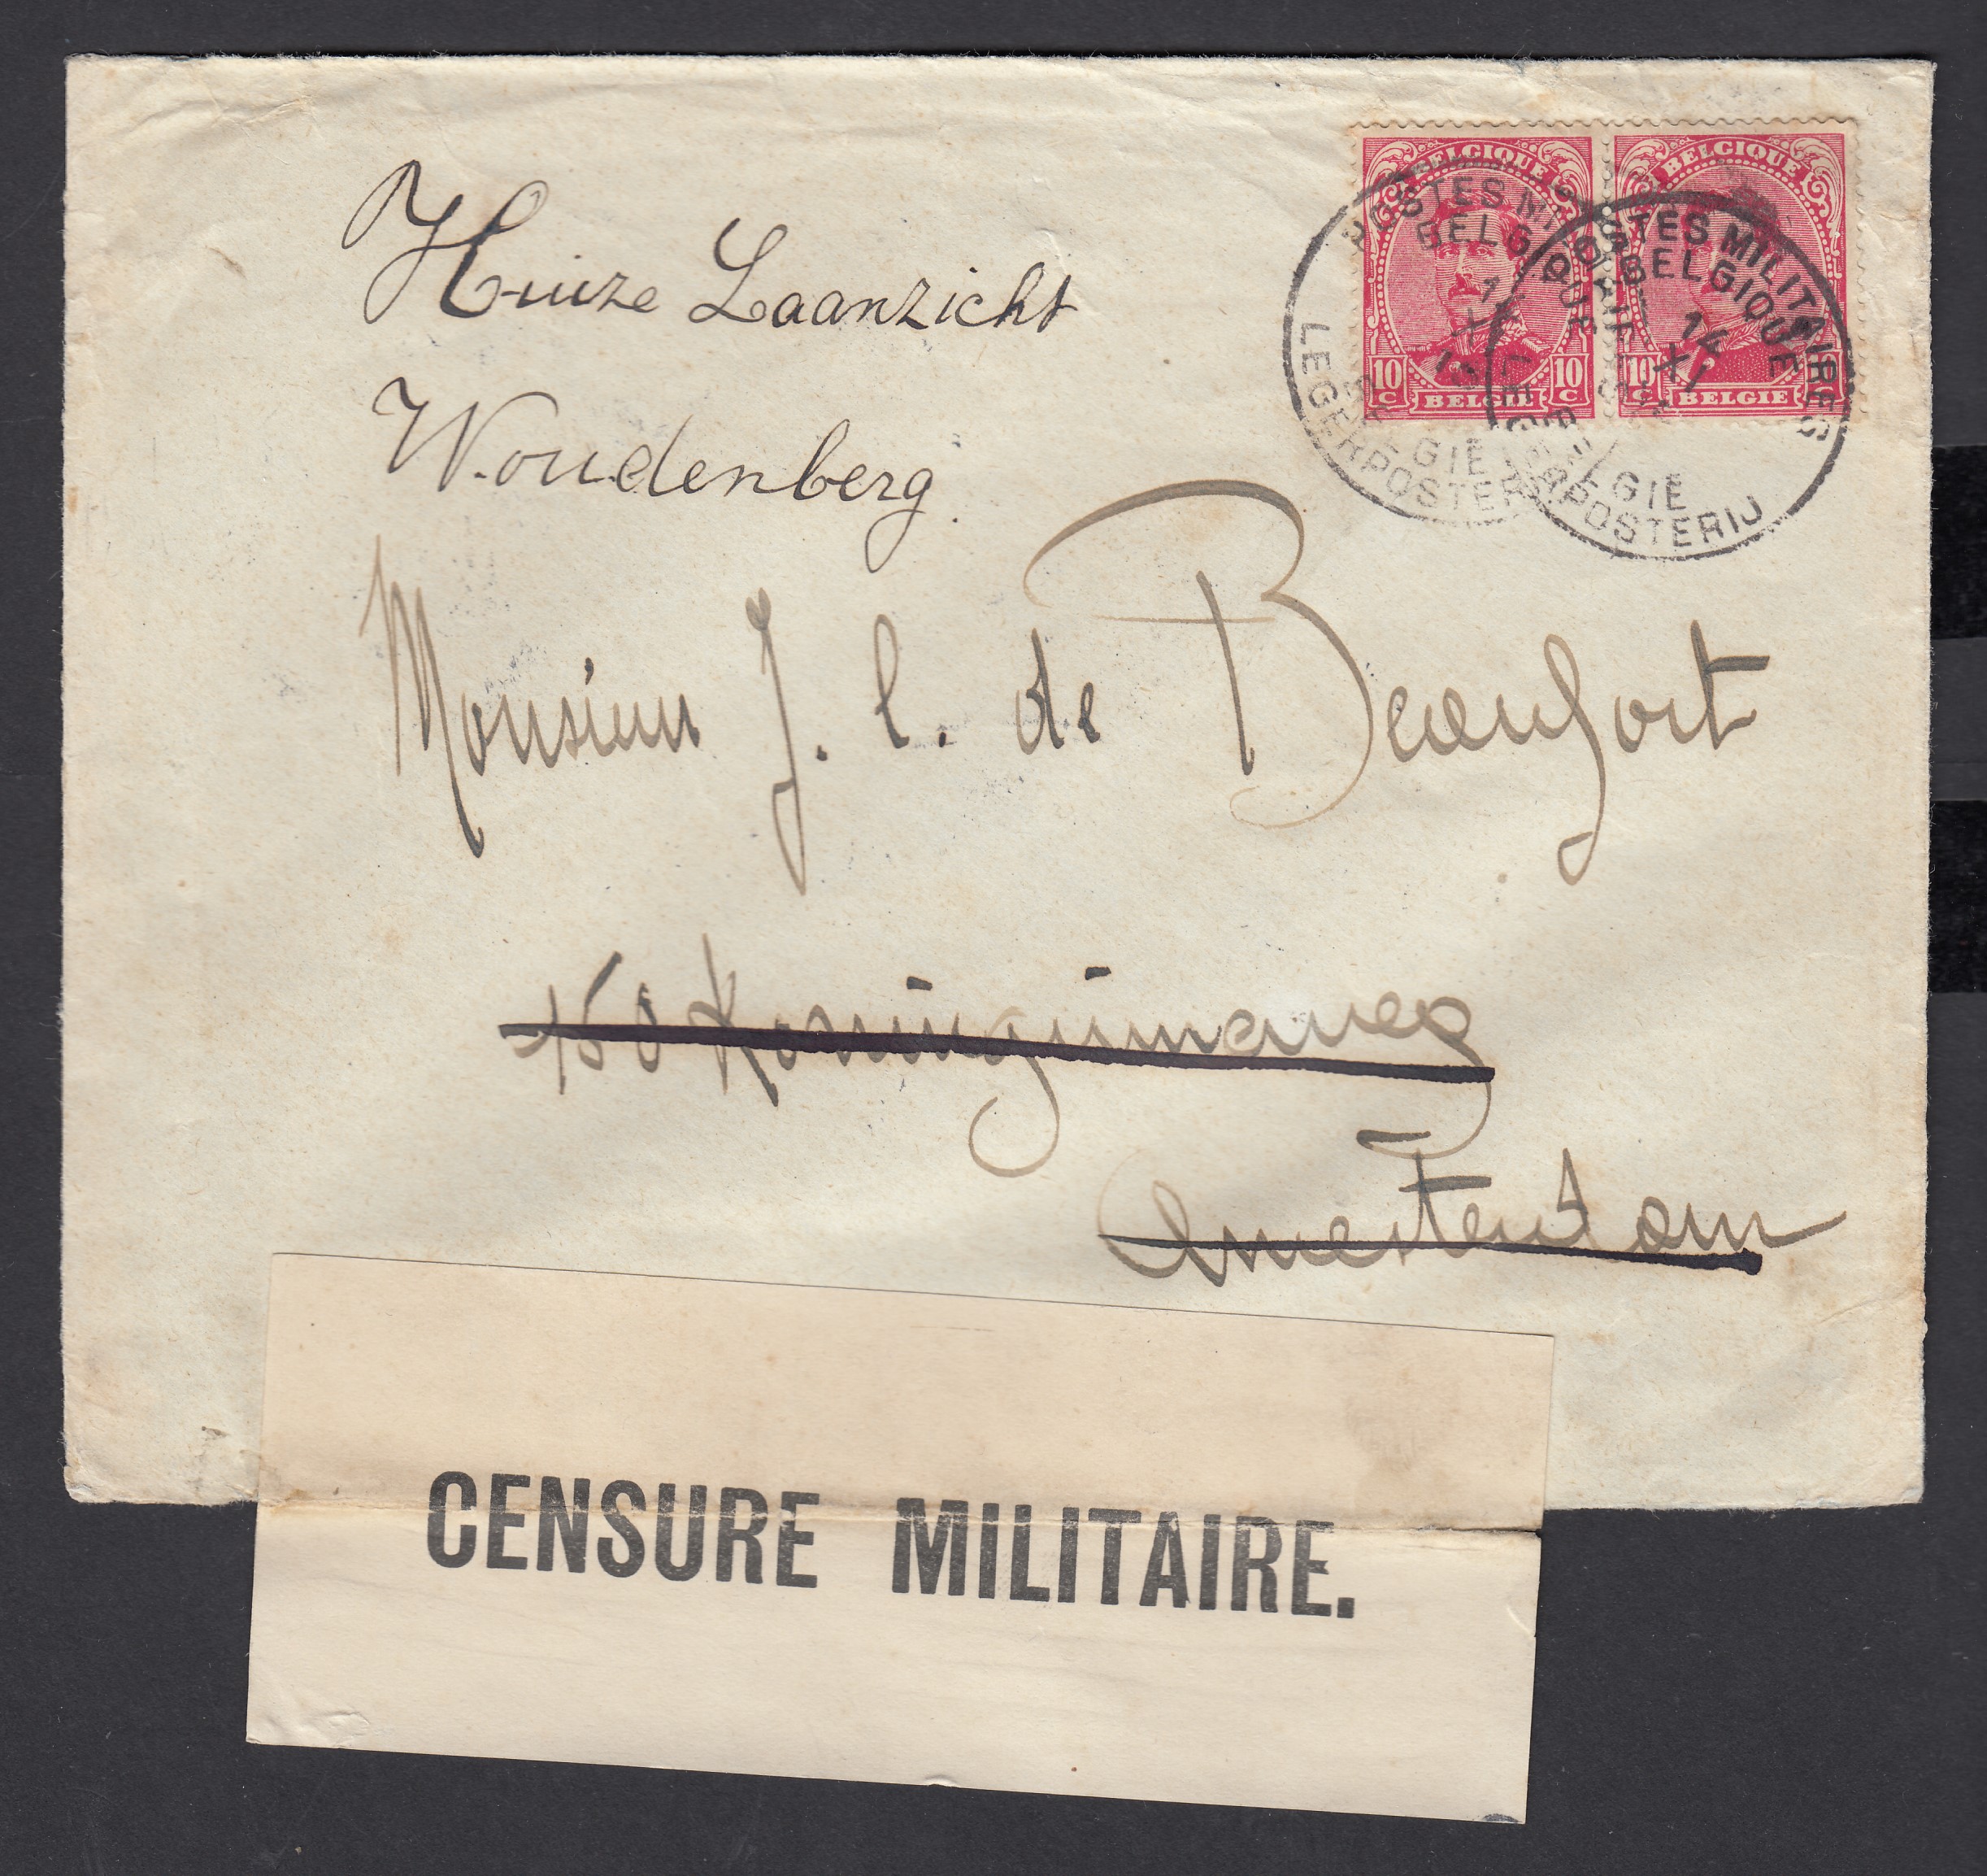 BELGIQUE BELGIQUE
10 C BELGIE 10 C
10 C BELGIE
POSTES MILITAIRES
BELGIQUE
BELGIE
LEGERPOSTERIJ
POSTES MILITAIRES
BELGIQUE
12
XI
BELGIE
LEGERPOSTERIJ
Huize Laanzicht
Woudenberg.
Monsieur J. l. de Beaufort
150 Koninginneweg
Amsterdam
CENSURE MILITAIRE.